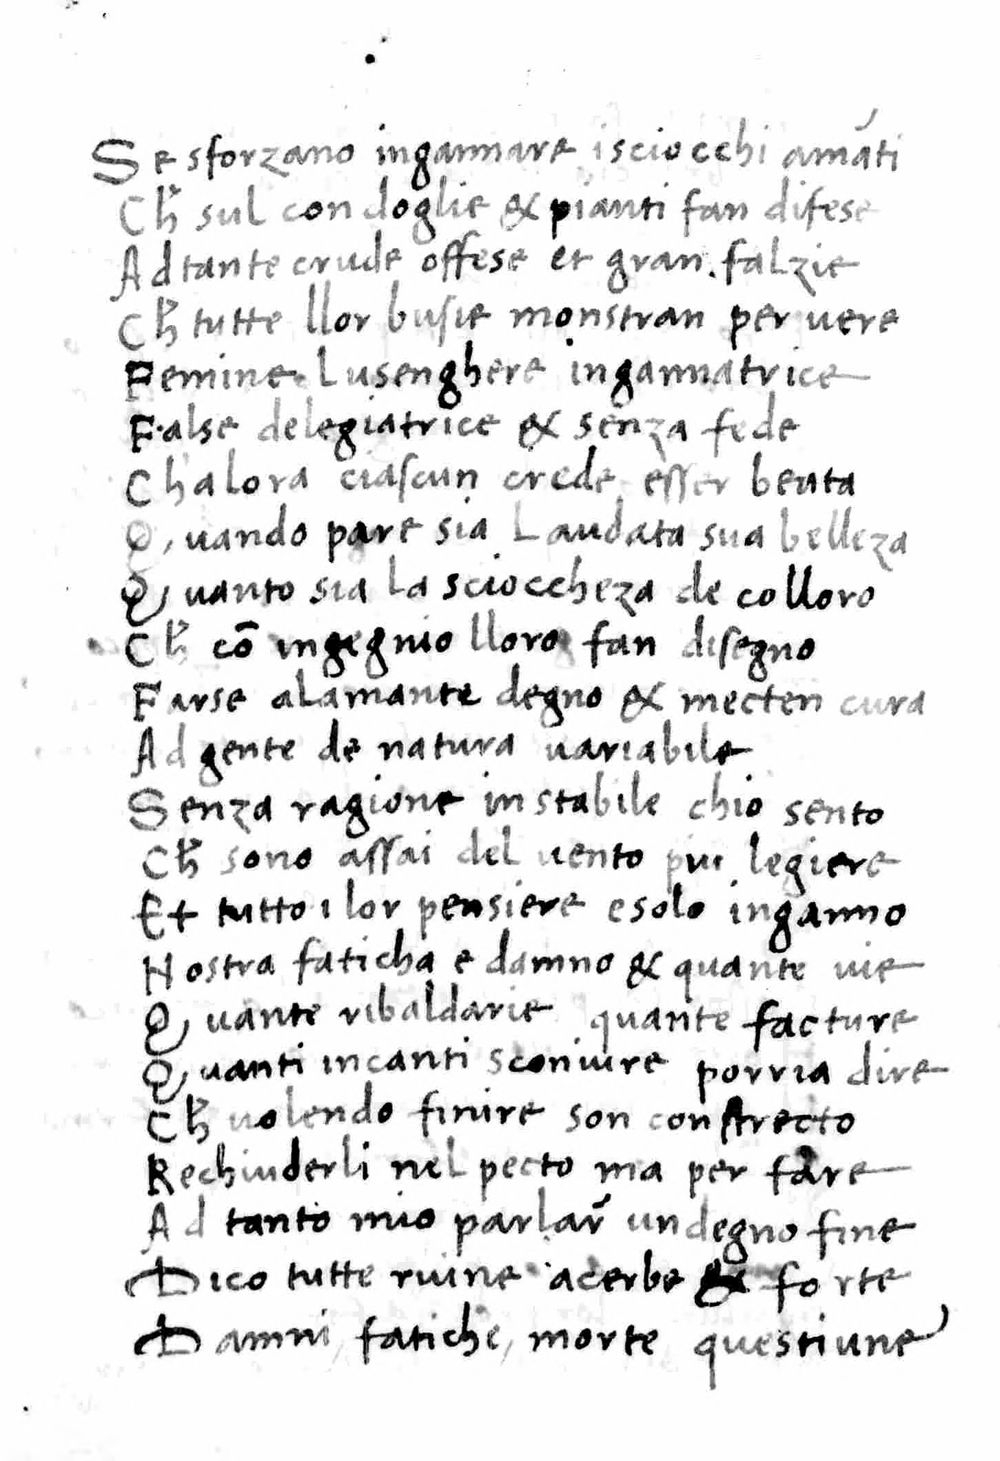 Se sforzano ingannare i sciocchi amāti
Ch̄ sul con doglie & pianti fan difese
Ad tante crude offese et gran falzie
Ch̄ tutte llor busie monstran per vere
Femine Lusenghere ingannatrice
False delegiatrice & senza fede
Chalora ciascun crede esser beata
Quando pare sia Laudata sua belleza
Quanto sia la scioccheza de colloro
Ch̄ cō ingegnio lloro fan disegno
Farse alamante degno & mecten cura
Ad gente de natura variabile
Senza ragione instabile chio sento
Ch̄ sono assai del uento piu legiere
Et tutto i lor pensiere e solo inganno
Nostra faticha e damno & quante uie
Quante ribaldarie quante facture
Quanti incanti sconiure porria dire
Ch̄ uolendo finire son constrecto
Rechiuderli nel pecto ma per fare
Ad tanto mio parlar̄ un degno fine
Dico tutte ruine acerbe & forte
Damni, fatiche, morte questiune